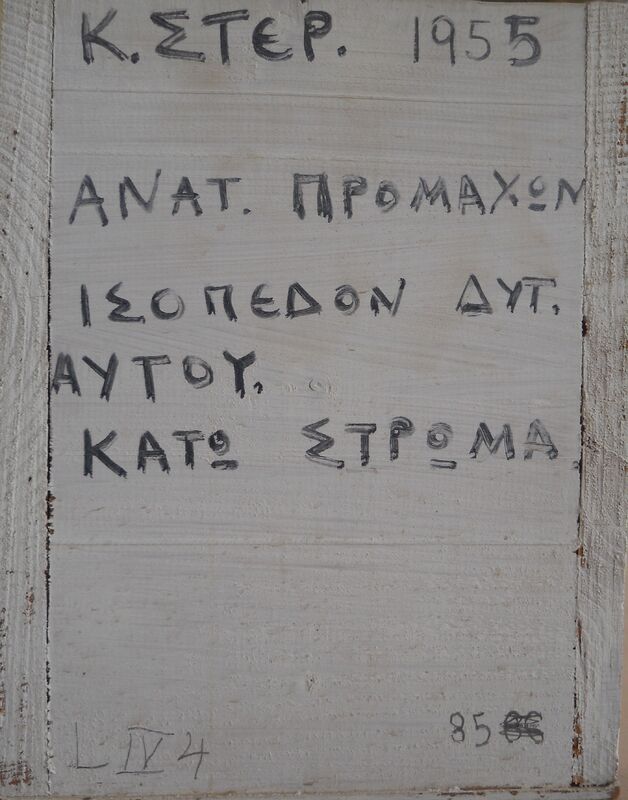 Κ. ΣΤΕΡ. 1955
ΑΝΑΤ. ΠΡΟΜΑΧΩΝ
ΙΣΟΠΕΔΟΝ ΔΥΤ.
ΑΥΤΟΥ.
ΚΑΤΩ ΣΤΡΩΜΑ.
85
L IV 4